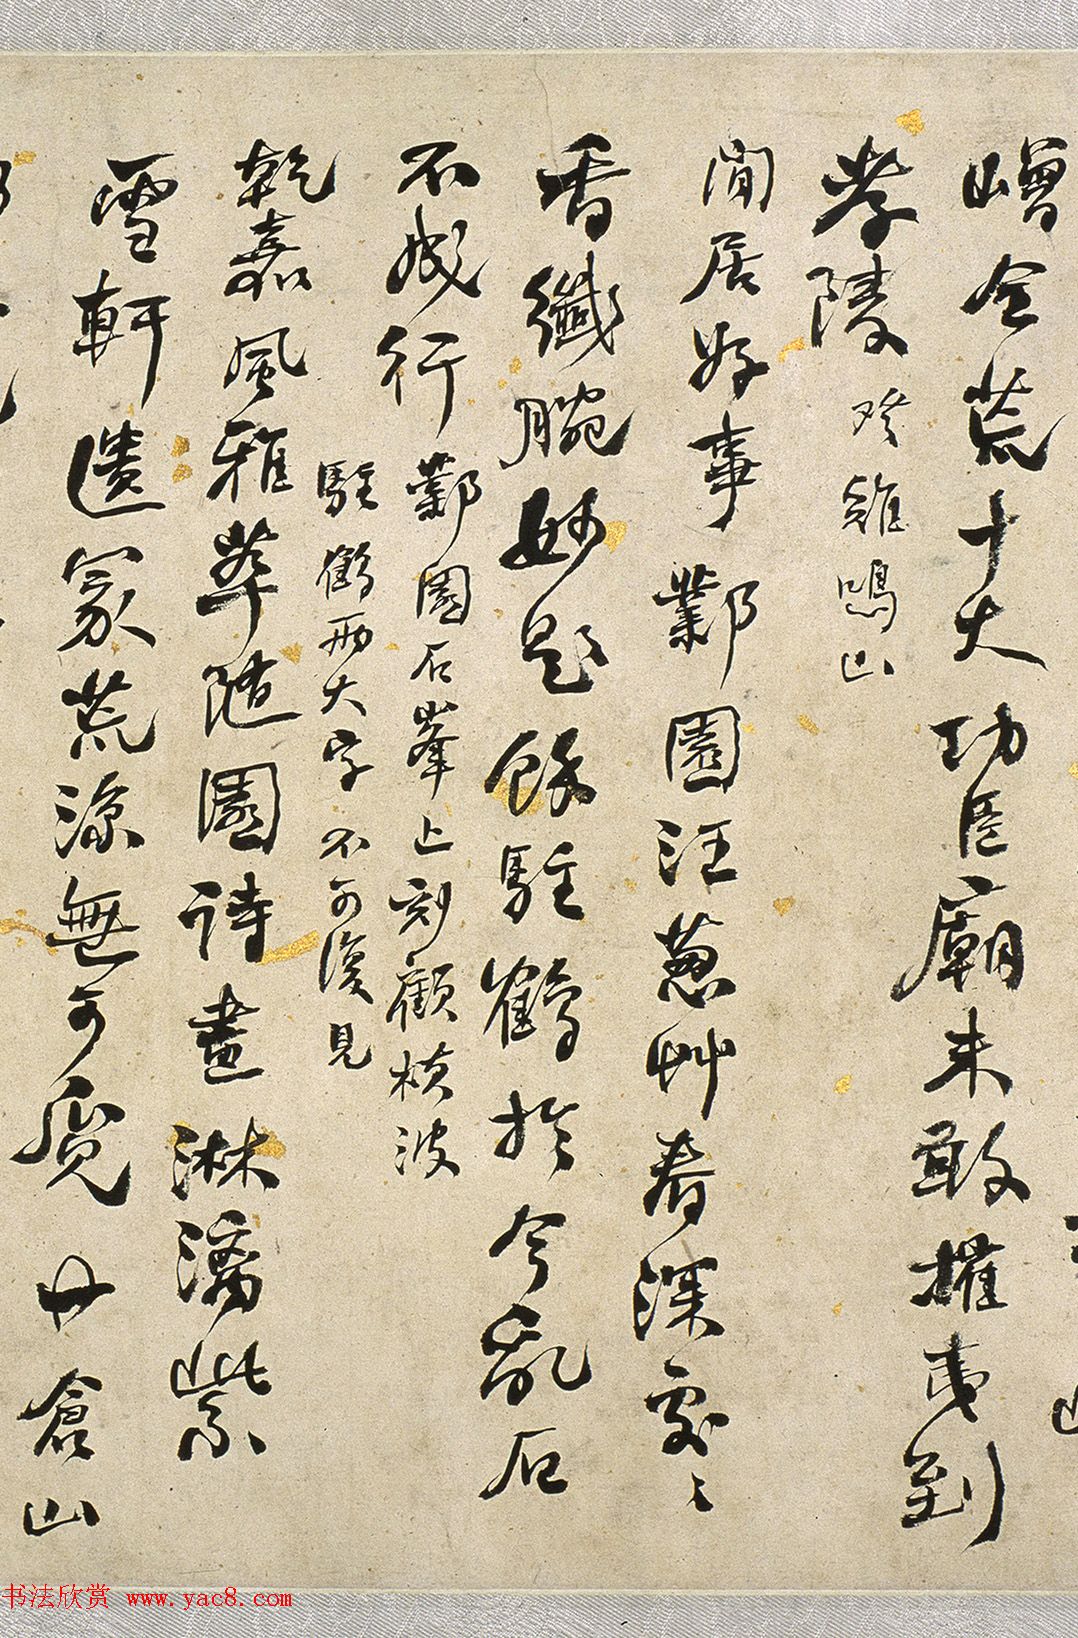 嶒全荒十大功臣廟未敢摧夷到
孝陵 登雞鳴山
閒居好事鄴園汪蔥艸春深處〻
香纖腕妙題餘駐鶴於今亂石
不成行 鄴園石峯上刻顧橫波
駐鶴兩大字不可復見
乾嘉風雅萃隨園詩畫淋漓紫
雪軒遺冢荒涼無可覓小倉山
书法欣赏 www.yac8.com